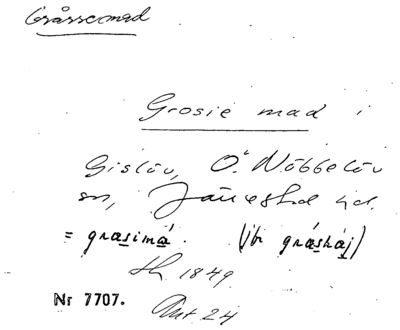 Gråssemad
Grosie mad i
Gislöv, Ö. Nöbbelöv
sn, Järrestad hd.
= græsimà. (jbr gråshåj)
1849.
Nr 7707.
Ant 24